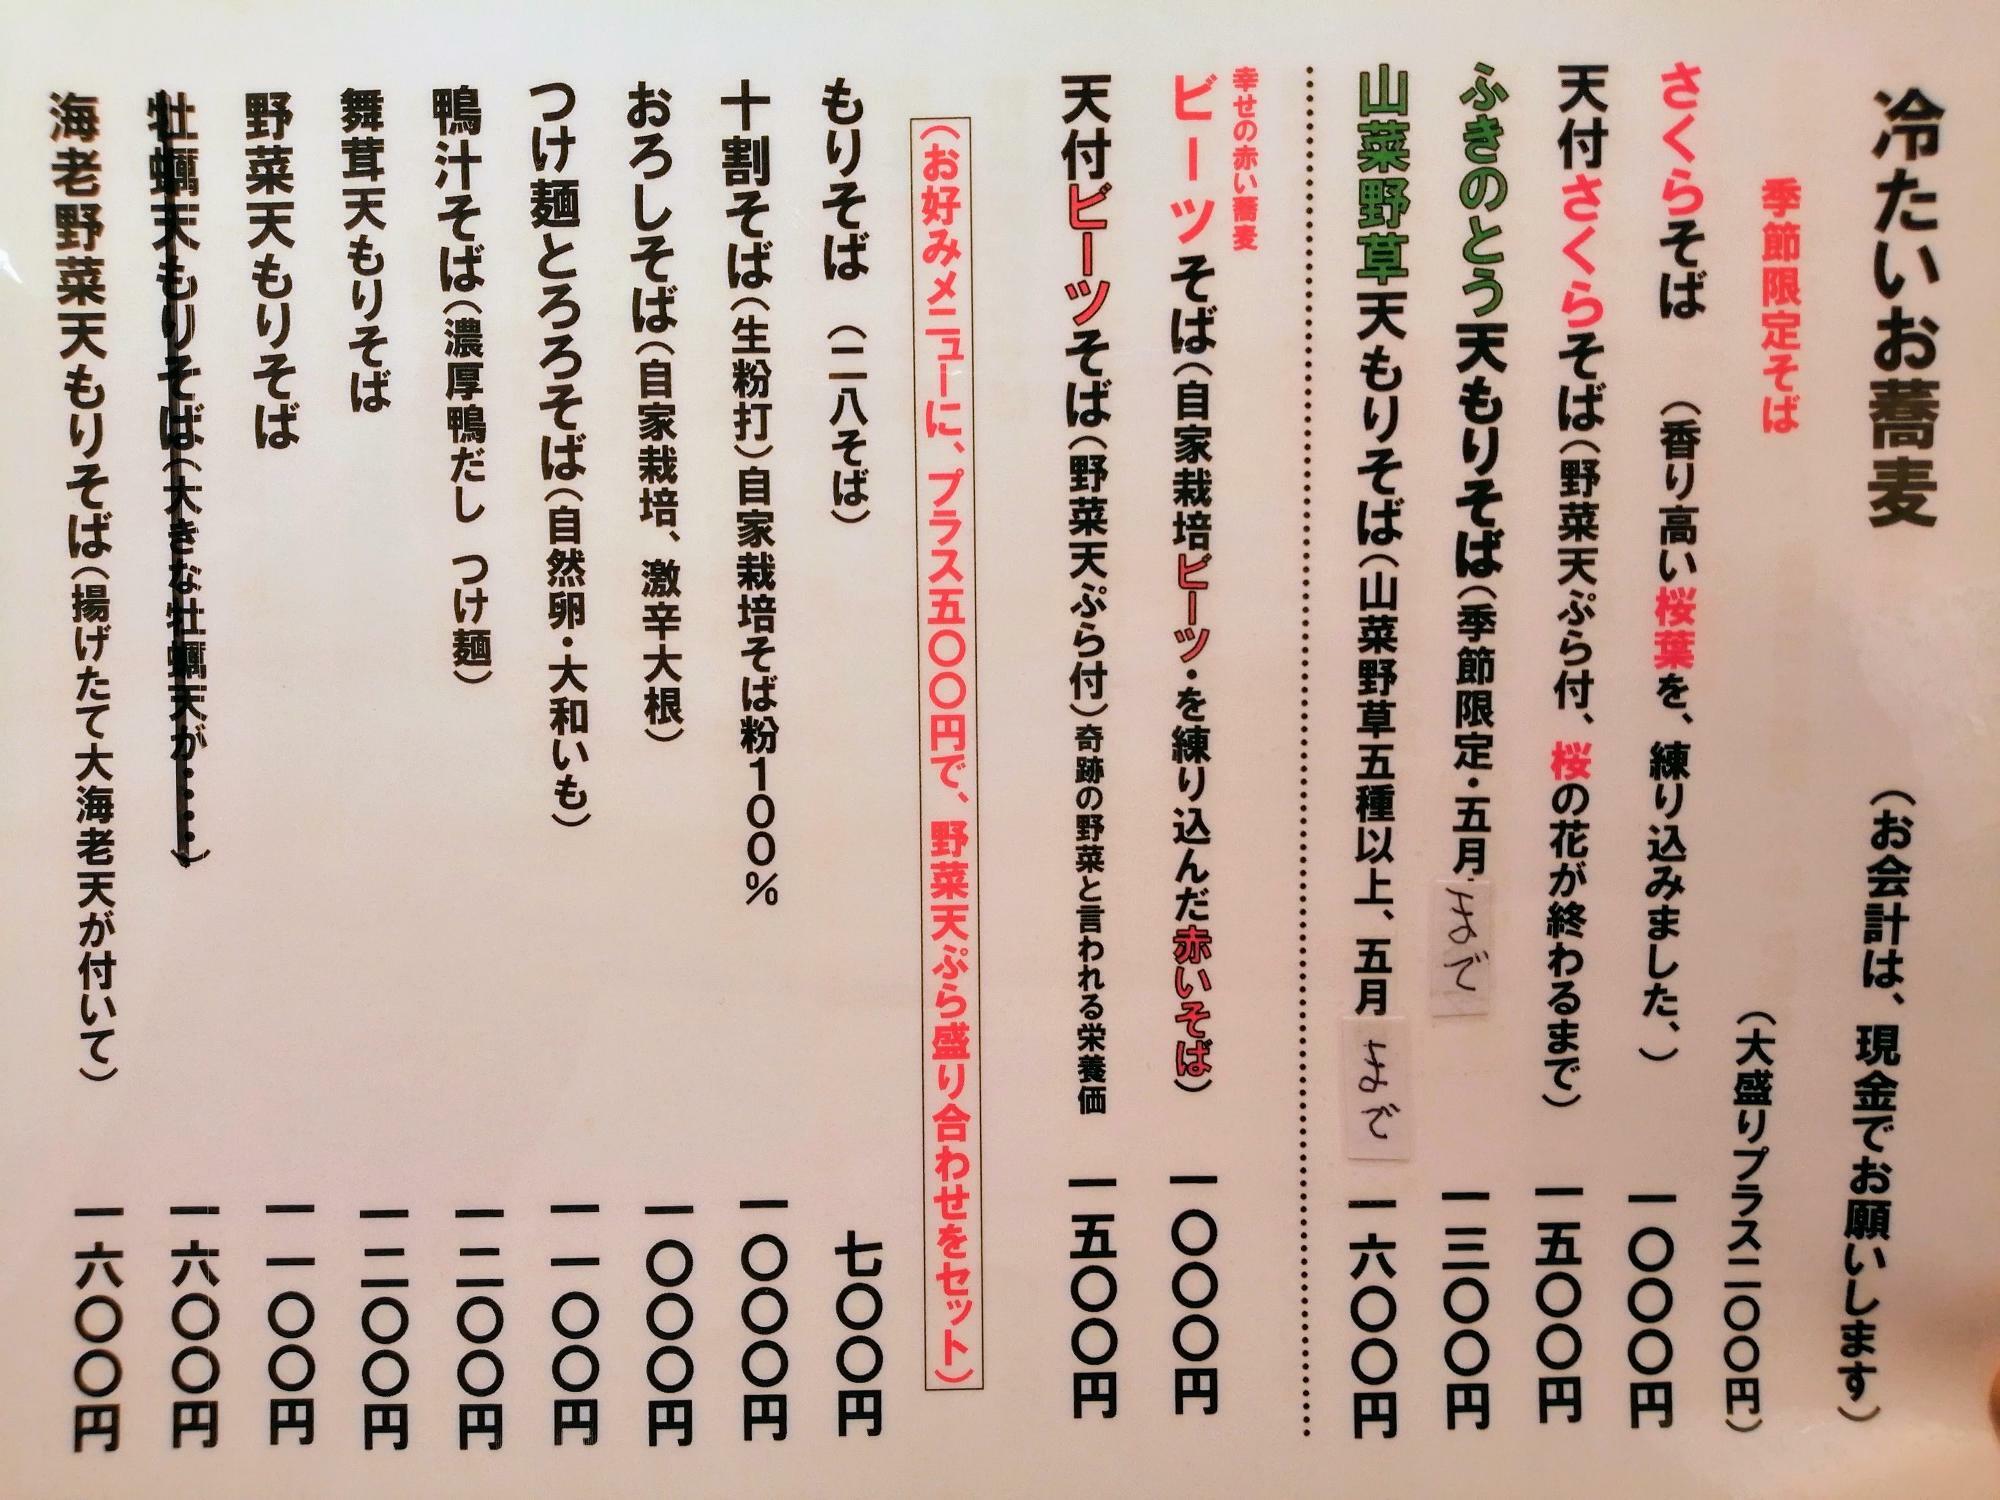 冷たいお蕎麦 （お会計は、現金でお願いします）
季節限定そば （大盛りプラス二〇〇円）
さくらそば （香り高い桜葉を、練り込みました、） 一〇〇〇円
天付さくらそば（野菜天ぷら付、桜の花が終わるまで） 一五〇〇円
ふきのとう天もりそば（季節限定・五月まで 一三〇〇円
山菜野草天もりそば（山菜野草五種以上、五月まで 一六〇〇円
幸せの赤い蕎麦
ビーツそば（自家栽培ビーツ・を練り込んだ赤いそば） 一〇〇〇円
天付ビーツそば（野菜天ぷら付）奇跡の野菜と言われる栄養価 一五〇〇円
（お好みメニューに、プラス五〇〇円で、野菜天ぷら盛り合わせをセット）
もりそば （二八そば） 七〇〇円
十割そば（生粉打）自家栽培そば粉100% 一〇〇〇円
おろしそば（自家栽培、激辛大根） 一〇〇〇円
つけ麺とろろそば（自然卵・大和いも） 一一〇〇円
鴨汁そば（濃厚鴨だし つけ麺） 一二〇〇円
舞茸天もりそば 一二〇〇円
野菜天もりそば 一一〇〇円
牡蠣天もりそば（大きな牡蠣天が・・・・・） 一六〇〇円
海老野菜天もりそば（揚げたて大海老天が付いて） 一六〇〇円